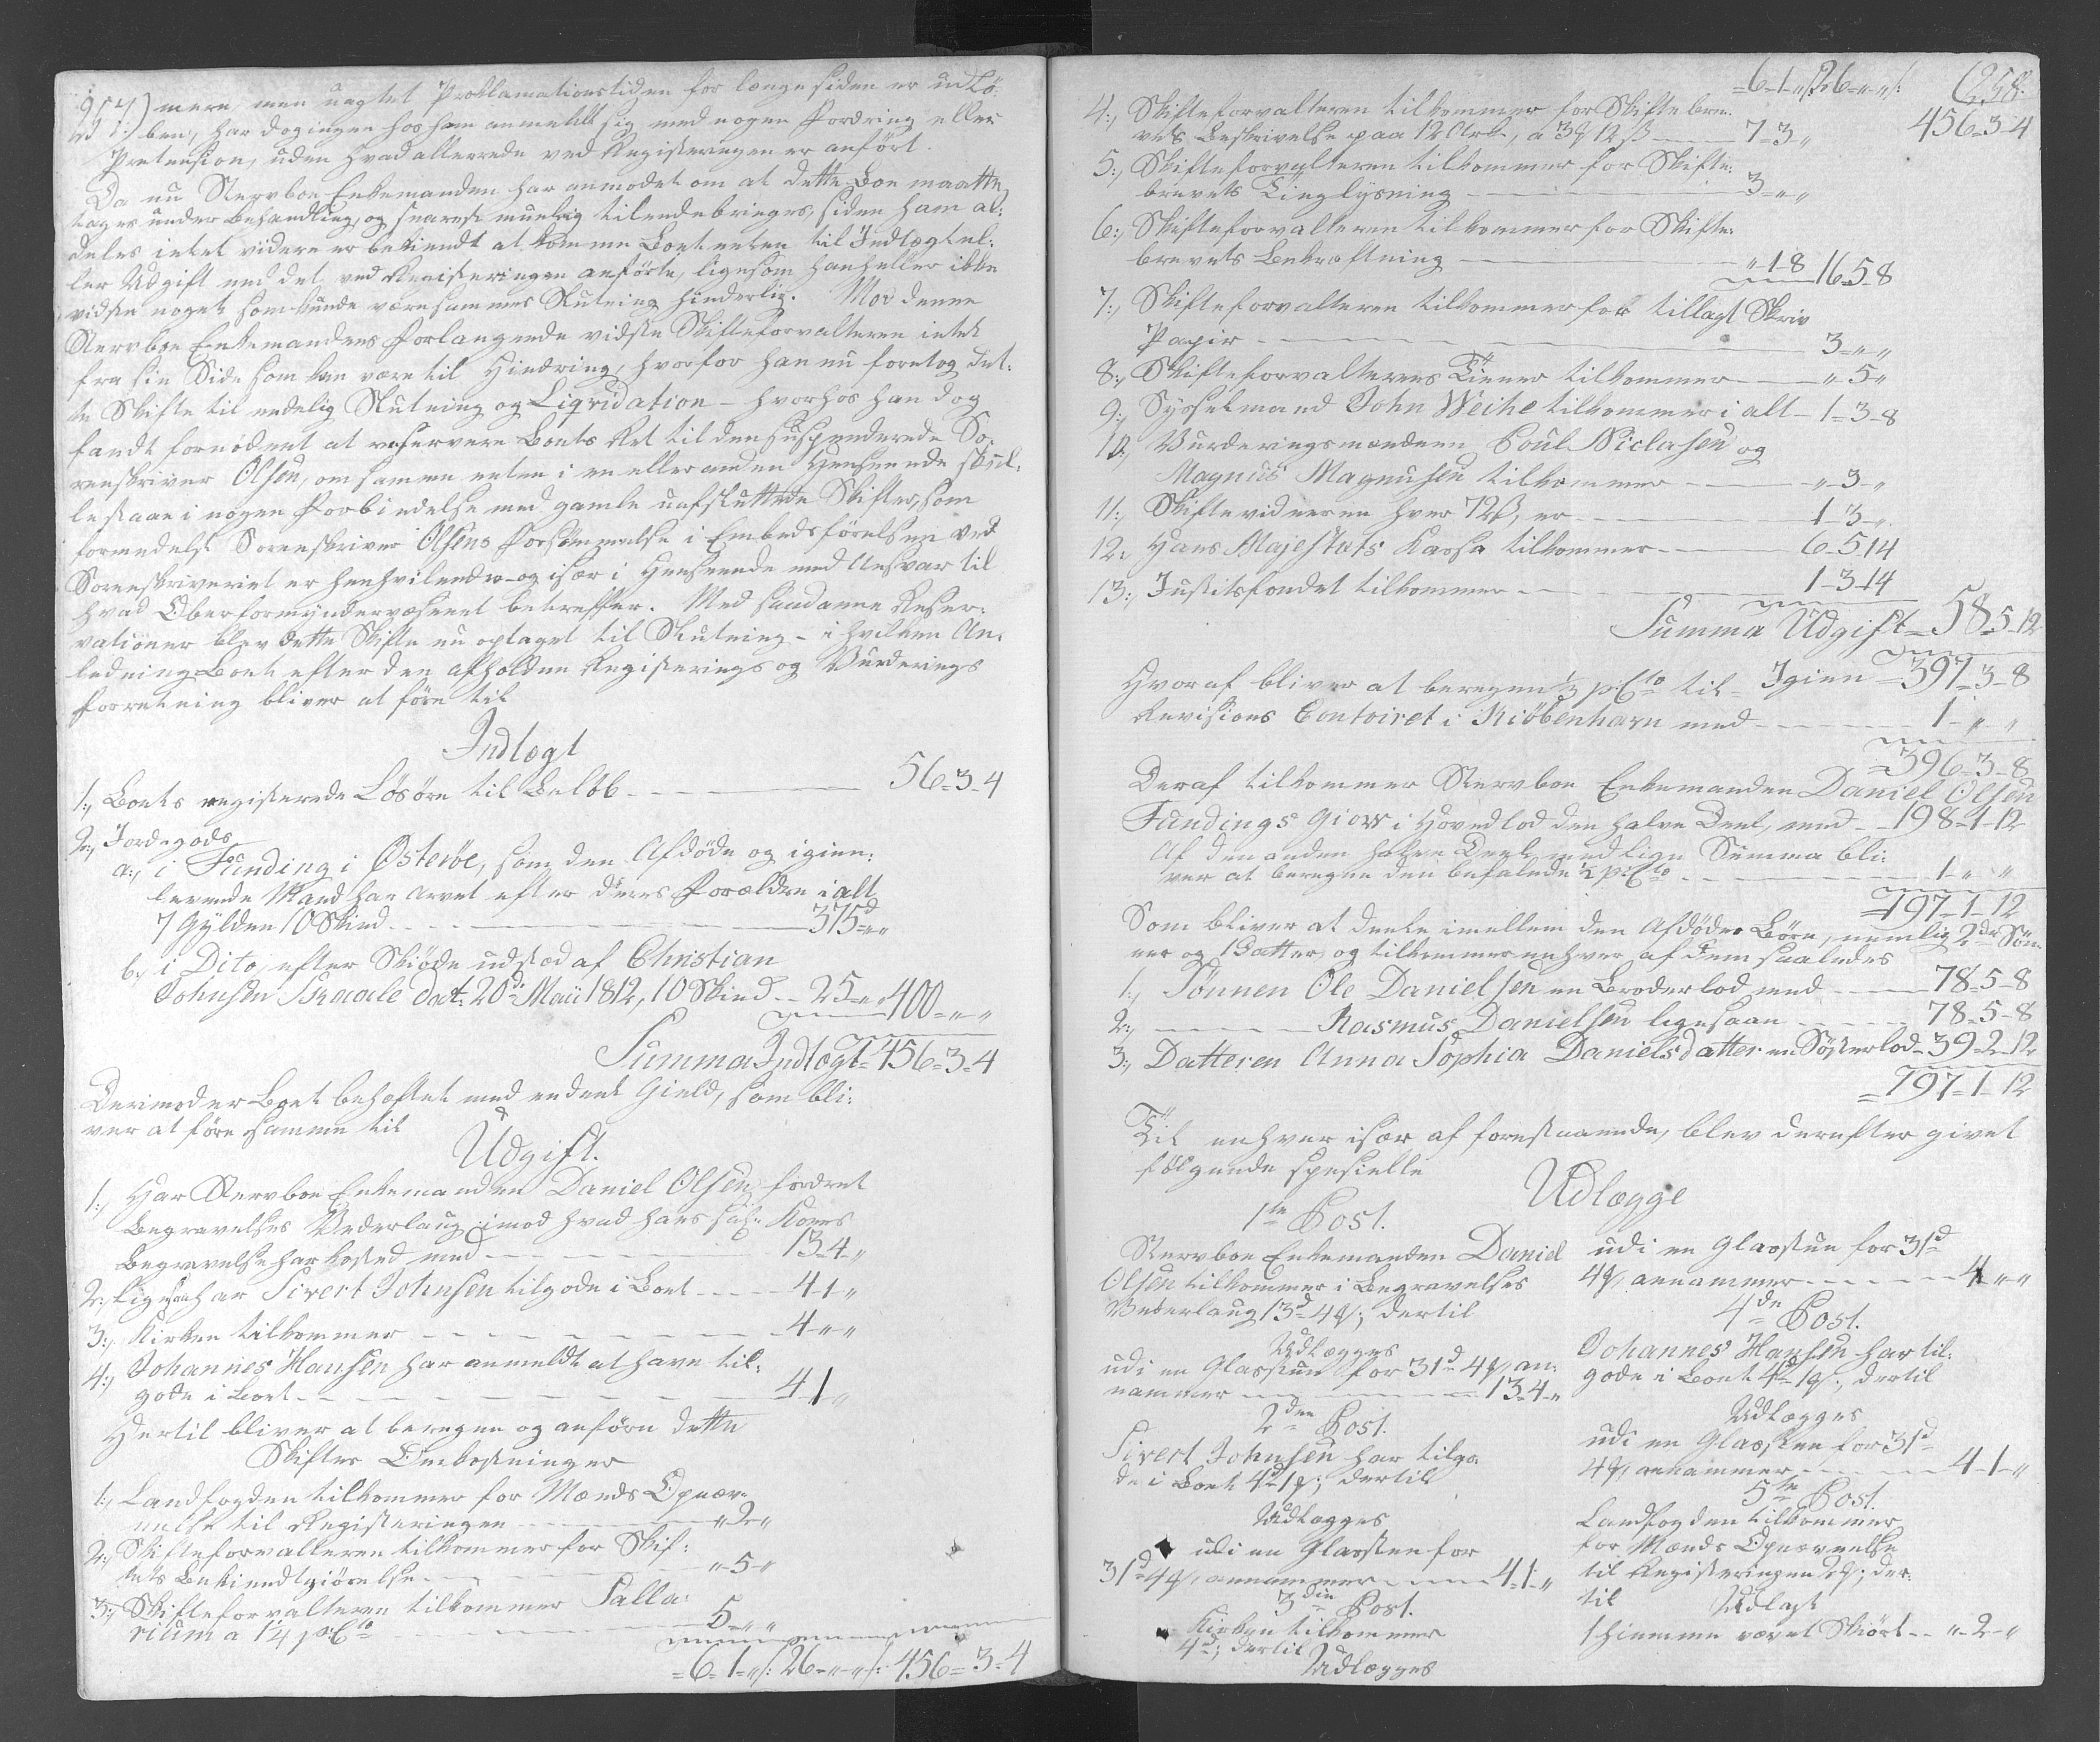 257.) mere, men uagtet Proklamationstiden for længe siden er udlø-
ben, har dog ingen hos ham anmeldt sig med nogen Fordring eller
Prætension, uden hvad allerede ved Registeringen er anført.
Da nu Stervboe Enkemanden har anmodet om at dette Boe maatte
tages under Behandling, og snarest muelig tilendebringes, siden ham al-
deles intet videre er bekiendt at komme Boet enten til Indtægt el-
ler Udgift end det ved Registeringen anførte, ligesom han heller ikke
vidste noget som kunde være sammes Slutning hinderlig. Mod denne
Stervboe Enkemandens Forlangende vidste Skifteforvalteren intet
fra sin Side som kan være til Hindring, hvorfor han nu foretog det-
te Skifte til endelig Slutning og Liqvidation - hvorhos han dog
fandt fornødent at reservere Boets Ret til den suspenderede So-
renskriver Olsen, om samme enten i en eller anden Henseende skul-
le staae i nogen Forbindelse med gamle uafsluttede Skifter, som
formedelst Sorenskriver Olsens Forsømmelse i Embedsførelsen ved
Sorenskriveriet er henhvilende - og især i Henseende med Ansvar til
hvad Oberformyndervæsenet betreffer. Med saadanne Reser-
vationer blev dette Skifte nu optaget til Slutning - i hvilken An-
ledning Boet efter den afholdne Registerings og Vurderings
Forretning bliver at føre til
Indtægt
1:, Boets registerede Løsøre til Beløb - - - 56-3-4
2:, Jordegods
a:, i Funding i Østerøe, som den Afdøde og igien-
levende Mand har arvet efter deres Forældre i alt
7 Gylden 10 Skind - - - 375d "-"
b:, i Dito, efter Skiøde udstæd af Christian
Johnsen Skaale dat: 20de Maii 1812, 10 Skind - - 25-"-" 400-"-"
Summa Indtægt 456-3-4
Derimod er Boet behæftet med endeel Gield, som bli-
ver at føre samme til
Udgift.
1:, Har Stervboe Enkemanden Daniel Olsen fordret
Begravelses Vederlaug imod hvad hans sal: Kones
Begravelse har kosted med - - - 13-4-"
2:, Ligesaa har Sivert Johnsen tilgode i Boet - - - 4-1-"
3:, Kirken tilkommer - - - 4-"-"
4:, Johannes Hansen har anmeldt at have til-
gode i Boet - - - 4-1-"
Hertil bliver at beregne og anføre dette
Skiftes Omkostninger
1:, Landfogden tilkommer for Mænds Opnæv-
nelse til Registeringen - - - "-2-"
2:, Skifteforvalteren tilkommer for Skif-
tets Bekiendtgiørelse - - - "-5-"
3:, Skifteforvalteren tilkommer Salla-
rium a 1¼ p:Cto - - - 5-"-"
=6-1-"/: 26-"-"/: 456=3-4
=6-1-"/: 26-"-"/: 258.
456-3-4
4:, Skifteforvalteren tilkommer for Skiftebre-
vets Beskrivelse paa 12 Ark, a 3 12 ß - - 7-3-"
5:, Skifteforvalteren tilkommer for Skifte-
brevets Tinglysning - - - 3-"-"
6:, Skifteforvalteren tilkommer for Skifte-
brevets Bekræftning - - - "-1-8 16-5-8
7:, Skifteforvalteren tilkommer for tillagt Skriv
Papir - - - 3-"-"
8:, Skifteforvalterens Tiener tilkommer - - "-5-"
9:, Sysselmand John Weihe tilkommer i alt - 1-3-8
10:, Vurderingsmændene Poul Niclasen og
Magnus Magnusen tilkommer - - - "-3-"
11:, Skiftevidnerne hver 72 ß, er - - - 1-3-"
12:, Hans Majestæts Kassa tilkommer - - 6-5-14
13:, Justitsfondet tilkommer - - - 1-3-14
Summa Udgift = 58-5-12
Igien = 397-3-8
Hvoraf bliver at beregne ½ p:Cto til
Revisions Contoiret i Kiøbenhavn med - - - 1-"-"
=396-3-8
Deraf tilkommer Stervboe Enkemanden Daniel Olsen
Fundings Giow i Hovedlod den halve Deel, med - - 198-1-12
Af den anden halve Deel med lige Summa bli-
ver at beregne den befalede ½ p:Cto - - - 1-"-"
=197-1-12
Som bliver at deele imellem den Afdødes Børn, nemlig 2de Søn-
ner og 1 Datter, og tilkommer enhver af dem saaledes
1:, Sønnen Ole Danielsen en Broderlod med - - - 78-5-8
2:, — Rasmus Danielsen ligesaa - - - 78-5-8
3:, Datteren Anna Sophia Danielsdatter en Søsterlod - 39-2-12
=197-1-12
Til enhver især af forestaaende, blev derefter givet
følgende spesielle
Udlægge
1te Post.
Stervboe Enkemanden Daniel
Olsen tilkommer i Begravelses
Vederlaug 13d 4; dertil
Udlægges
udi en Glasstue for 31d 4, an-
nammer - - - 13-4-"
2den Post.
Sivert Johnsen har tilgo-
de i Boet 4d 1; dertil
Udlægges
udi en Glasstue for
31d 4, annammer - - - 4-1-"
3die Post.
Kirken tilkommer
4d; dertil
Udlægges
udi en Glasstue for 31d
4, annammer - - - 4-"-"
4de Post.
Johannes Hansen har til-
gode i Boet 4d 1; dertil
Udlægges
udi en Glasstue for 31d
4, annammer - - - 4-1-"
5te Post.
Landfogden tilkommer
for Mænds Opnævnelse
til Registeringen 2; der-
til Udlagt
1 hiemme vævet Skiørt - - "-2-"